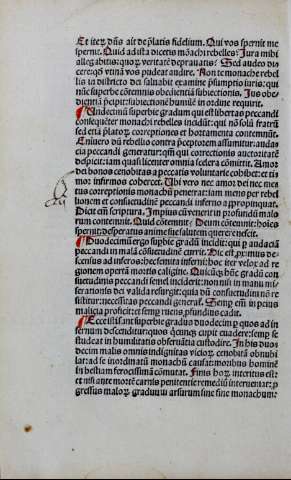 Et iteꝝ dñs ait de p̃latis fidelium. Qui vos spernit me
spernit. Quid ad ista dicetis mõachi rebelles: Jura mihi
allegabitis: quoꝝ veritatẽ deprauatis: Sed audeo di⸗
cere: qđ vtinã vos pudeat audire. Non te monache rebel
lis in districto dei saluabit examine p̃sumptio iuris: qui
nũc superbe cõtemnis obedientiã subiectionis. Jus obe⸗
dientiã p̃cipit: subiectionẽ humilẽ in ordine requirit.
Undecimũ superbie gradum qui est libertas peccandi
consequẽter monachi rebelles incidũt: qui nõ solũ fratrũ
sed etiã platoꝝ correptiones et hortamenta contemnũt.
Eruere dũ rebellio contra p̃ceptorem assumitur: auda⸗
cia peccandi generatur: qm̃ qui correctionis auctoritatẽ
despicit: iam quasi licenter omnia scelera cõmittit. Amor
dei bonos cenobitas a peccatis voluntarie cohibet: et ti⸗
mor infirmos cohercet. Ubi vero nec amor dei nec me⸗
tus correptionis monachũ penetrat: iam meno per rebel
lionem et consuetudinẽ peccandi inferno appropinquat.
Dicit em̃ scriptura. Impius cũ venerit in profundũ malo
rum contemnit. Quid cõtemnit: Deum cõtemnit: hoĩes
spernit: desperatus anime sue salutem querere nescit.
Duodecimũ ergo supbie gradũ incidit: qui p̱ audaciã
peccandi in malã consuetudinẽ currit. Dic est primus de⸗
census ad inferos: hec femita inferni: hoc iter velox ad re
gionem opertã mortis caligine. Quicũqꝫ hũc gradũ con
suetudinis peccandi semel inciderit: non nisi in manu mi
serationis dei valida resurgit: quia dũ consuetudini nõ re
sistitur: necessitas peccandi general᷒. Semp̱ em̃ in peius
malicia proficit: et semp̱ ruens p̱fundius cadit.
Ecce isti sunt superbie gradus duodecim p̱ quos ad in
fernum descenditur: quos q̃cunqꝫ cupit euadere: semp̱ se
studeat in humilitatis obseruãtia custodire. In his duo⸗
decim malis omnis indignitas vicioꝝ cenobitã obnubi
lat: ad se inordinatũ monachũ causat: moribus hominẽ
in bestiam ferocissimã cõmutat. Finis hoꝝ interitus est:
et nisi ante mortẽ carnis penitentie remediũ interueniat: p̱
gressus maloꝝ graduũ arsurum sine fine monachum: